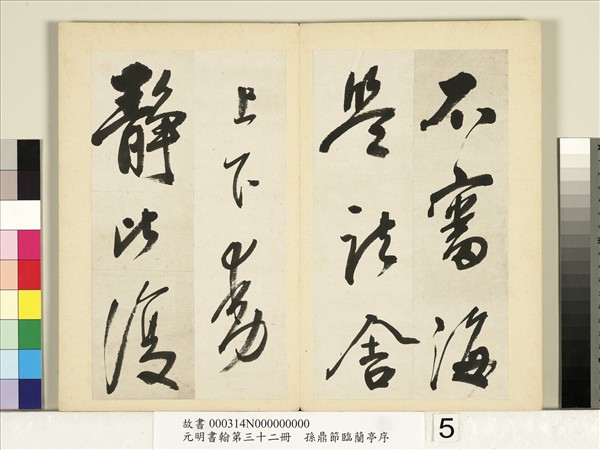 不審海
鹽諸舍
上下動
靜比復
故書 000314N000000000
元明書翰第三十二冊 孫鼎節臨蘭亭序
5